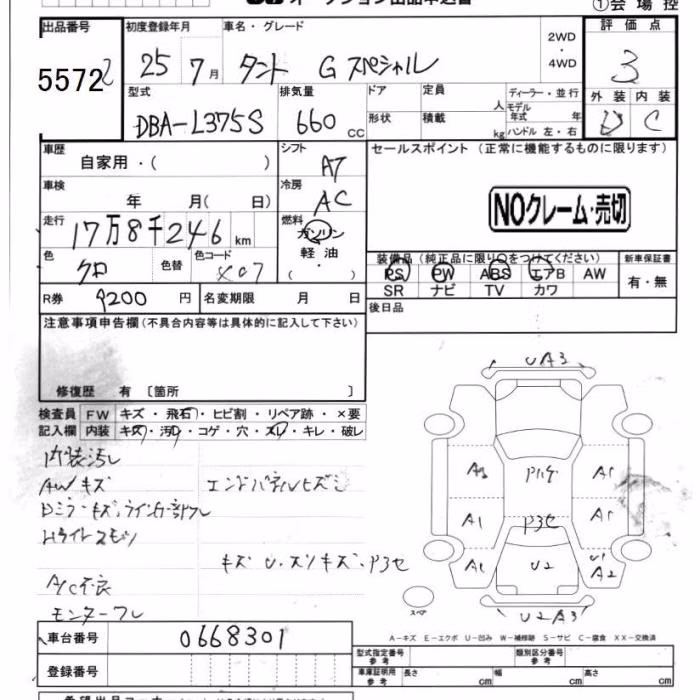 オークション出品申込書
①会場控
出品番号 初度登録年月 車名・グレード 評価点
5572 25 7月 タント Gスペシャル 2WD・4WD 3
型式 排気量 ドア 定員 人 ディーラー・並行 外装 内装
DBA-L375S 660 CC 形状 積載 kg モデル年式 年 ハンドル 左・右 D C
車歴 シフト セールスポイント (正常に機能するものに限ります)
自家用・( ) AT
車検 冷房
年 月( 日) AC NOクレーム・売切
走行 燃料
17万8千246km ガソリン
色 色替 色コード 軽油 装備品 (純正品に限り○をつけてください) 新車保証書
クロ X07 ・ ( ) PS PW ABS エアB AW 有・無
SR ナビ TV カワ
R券 9200円 名変期限 月 日 後日品
注意事項申告欄 (不具合内容等は具体的に記入して下さい)
修復歴 有 〔箇所 〕
検査員 FW キズ・飛石・ヒビ割・リペア跡・×要
記入欄 内装 キズ・汚れ・コゲ・穴・スレ・キレ・破レ
内装汚レ
AWキズ エンドパネルヒズミ
Hライトスモリ
A/C不良
UA3
A1
A1 A1
P3セ
A1 U2 U1 A2
スペア
U2A3
A-キズ E-エクボ U-凹み W-補修跡 S-サビ C-腐食 XX-交換済
車台番号 0668301
型式指定番号 参考 類別区分番号 参考
登録番号
車庫証明用 参考 長さ cm 幅 cm 高さ cm
希望出品コーナー